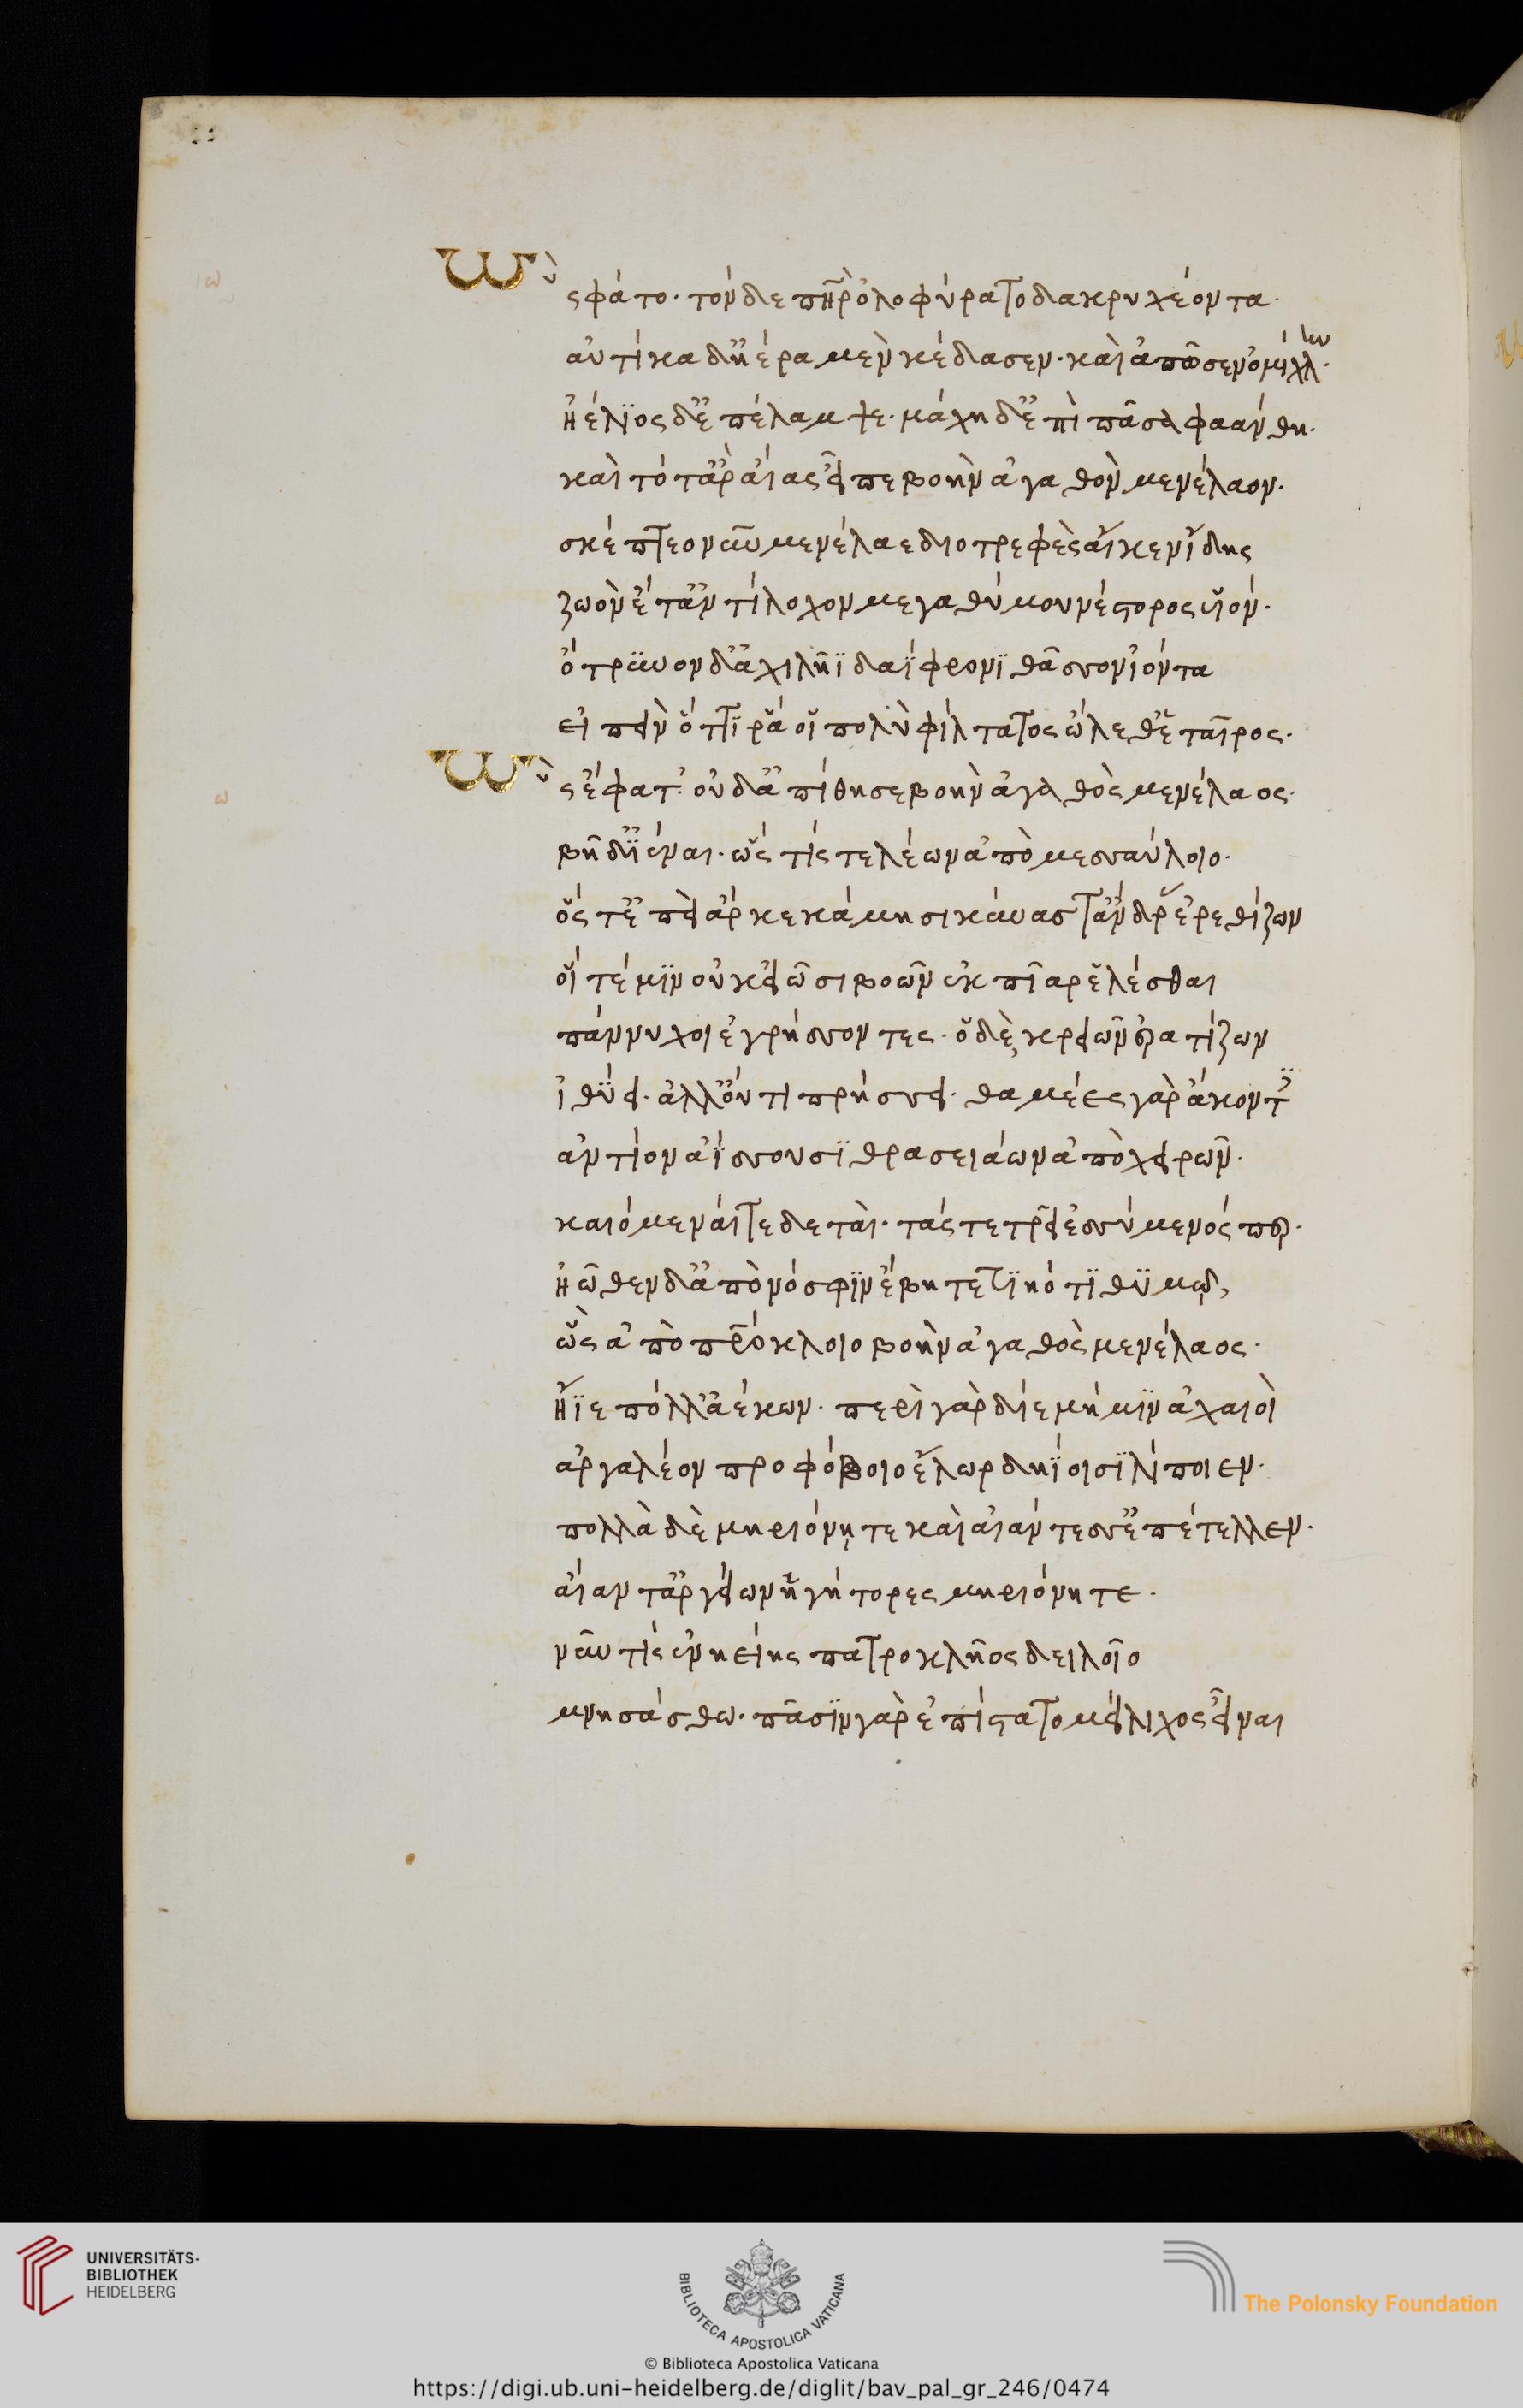 Ὣς φάτο· τὸν δὲ πηρ ὀλοφύρατο δακρυχέοντα·
αὐτίκα δ' ἠέρα μὲν κέδασεν· καὶ ἀπῶσεν ὀμίχλην·
ἠέλϊος δ' ἐπέλαμψε· μάχη δ' ἐπὶ πᾶσα φαάνθη·
καὶ τότ' ἂρ αἴας εἶπε βοὴν ἀγαθὸν μενέλαον·
σκέπτεο νῦν μενέλαε διοτρεφὲς αἴ κεν ἴδης
ζωὸν ἔτ' ἀντίλοχον μεγαθύμου νέστορος υἱόν·
ὄτρϋνον δ' ἀχιλῆϊ δαΐφρονϊ θᾶσσον ἰόντα
εἰπεῖν ὅττί ῥά οἱ πολὺ φίλτατος ὤλεθ' ἑταῖρος·
Ὣς ἔφατ'· οὐδ' ἀπίθησε βοὴν ἀγαθὸς μενέλαος·
βῆ δ' ἰέναι· ὥς τίς τε λέων ἀπὸ μεσσαύλοιο·
ὅς τ' ἐπεὶ ἄρ κε κάμησι κύνας τ' ἄνδρας ἐρεθίζων
οἵ τέ μϊν οὐκ εἰῶσι βοῶν ἐκ πῖαρ ἑλέσθαι
πάννυχοι ἐγρήσσοντες· ὁ δὲ κρειῶν ἐρατίζων
ἰθύει· ἀλλ' οὔτι πρήσσει· θαμέες γὰρ ἄκοντες
ἀντίον ἀΐσσουσϊ θρασειάων ἀπὸ χειρῶν·
καιόμεναί τε δεταὶ· τάς τε τρεῖ ἐσσύμενός περ·
ἠῶθεν δ' ἀπὸ νόσφϊν ἔβη τετϊηότϊ θϋμῷ,
ὣς ἀπὸ πατρόκλοιο βοὴν ἀγαθὸς μενέλαος·
ἤϊε πόλλ' ἀέκων· περὶ γὰρ δίε μή μϊν ἀχαιοὶ
ἀργαλέου προ φόβοιο ἕλωρ δηΐοισϊ λίποιεν·
πολλὰ δὲ μηριόνῃ τε καὶ αἰάντεσσ' ἐπέτελλεν·
αἴαντ' ἀργείων ἡγήτορες μηριόνη τε·
νῦν τίς ἐνηείης πατροκλῆος δειλοῖο
μνησάσθω· πᾶσϊν γὰρ ἐπίστατο μείλιχος εἶναι
UNIVERSITÄTS-
BIBLIOTHEK
HEIDELBERG
BIBLIOTECA APOSTOLICA VATICANA
The Polonsky Foundation
© Biblioteca Apostolica Vaticana
https://digi.ub.uni-heidelberg.de/diglit/bav_pal_gr_246/0474